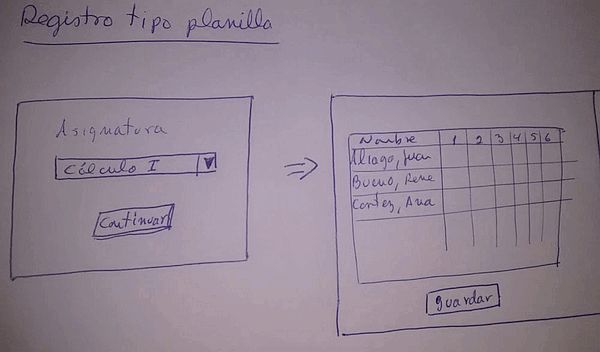 Registro tipo planilla
Asignatura
Cálculo I
Continuar
Nombre 1 2 3 4 5 6
Aliaga, Juan
Bueno, Rene
Cortez, Ana
guardar